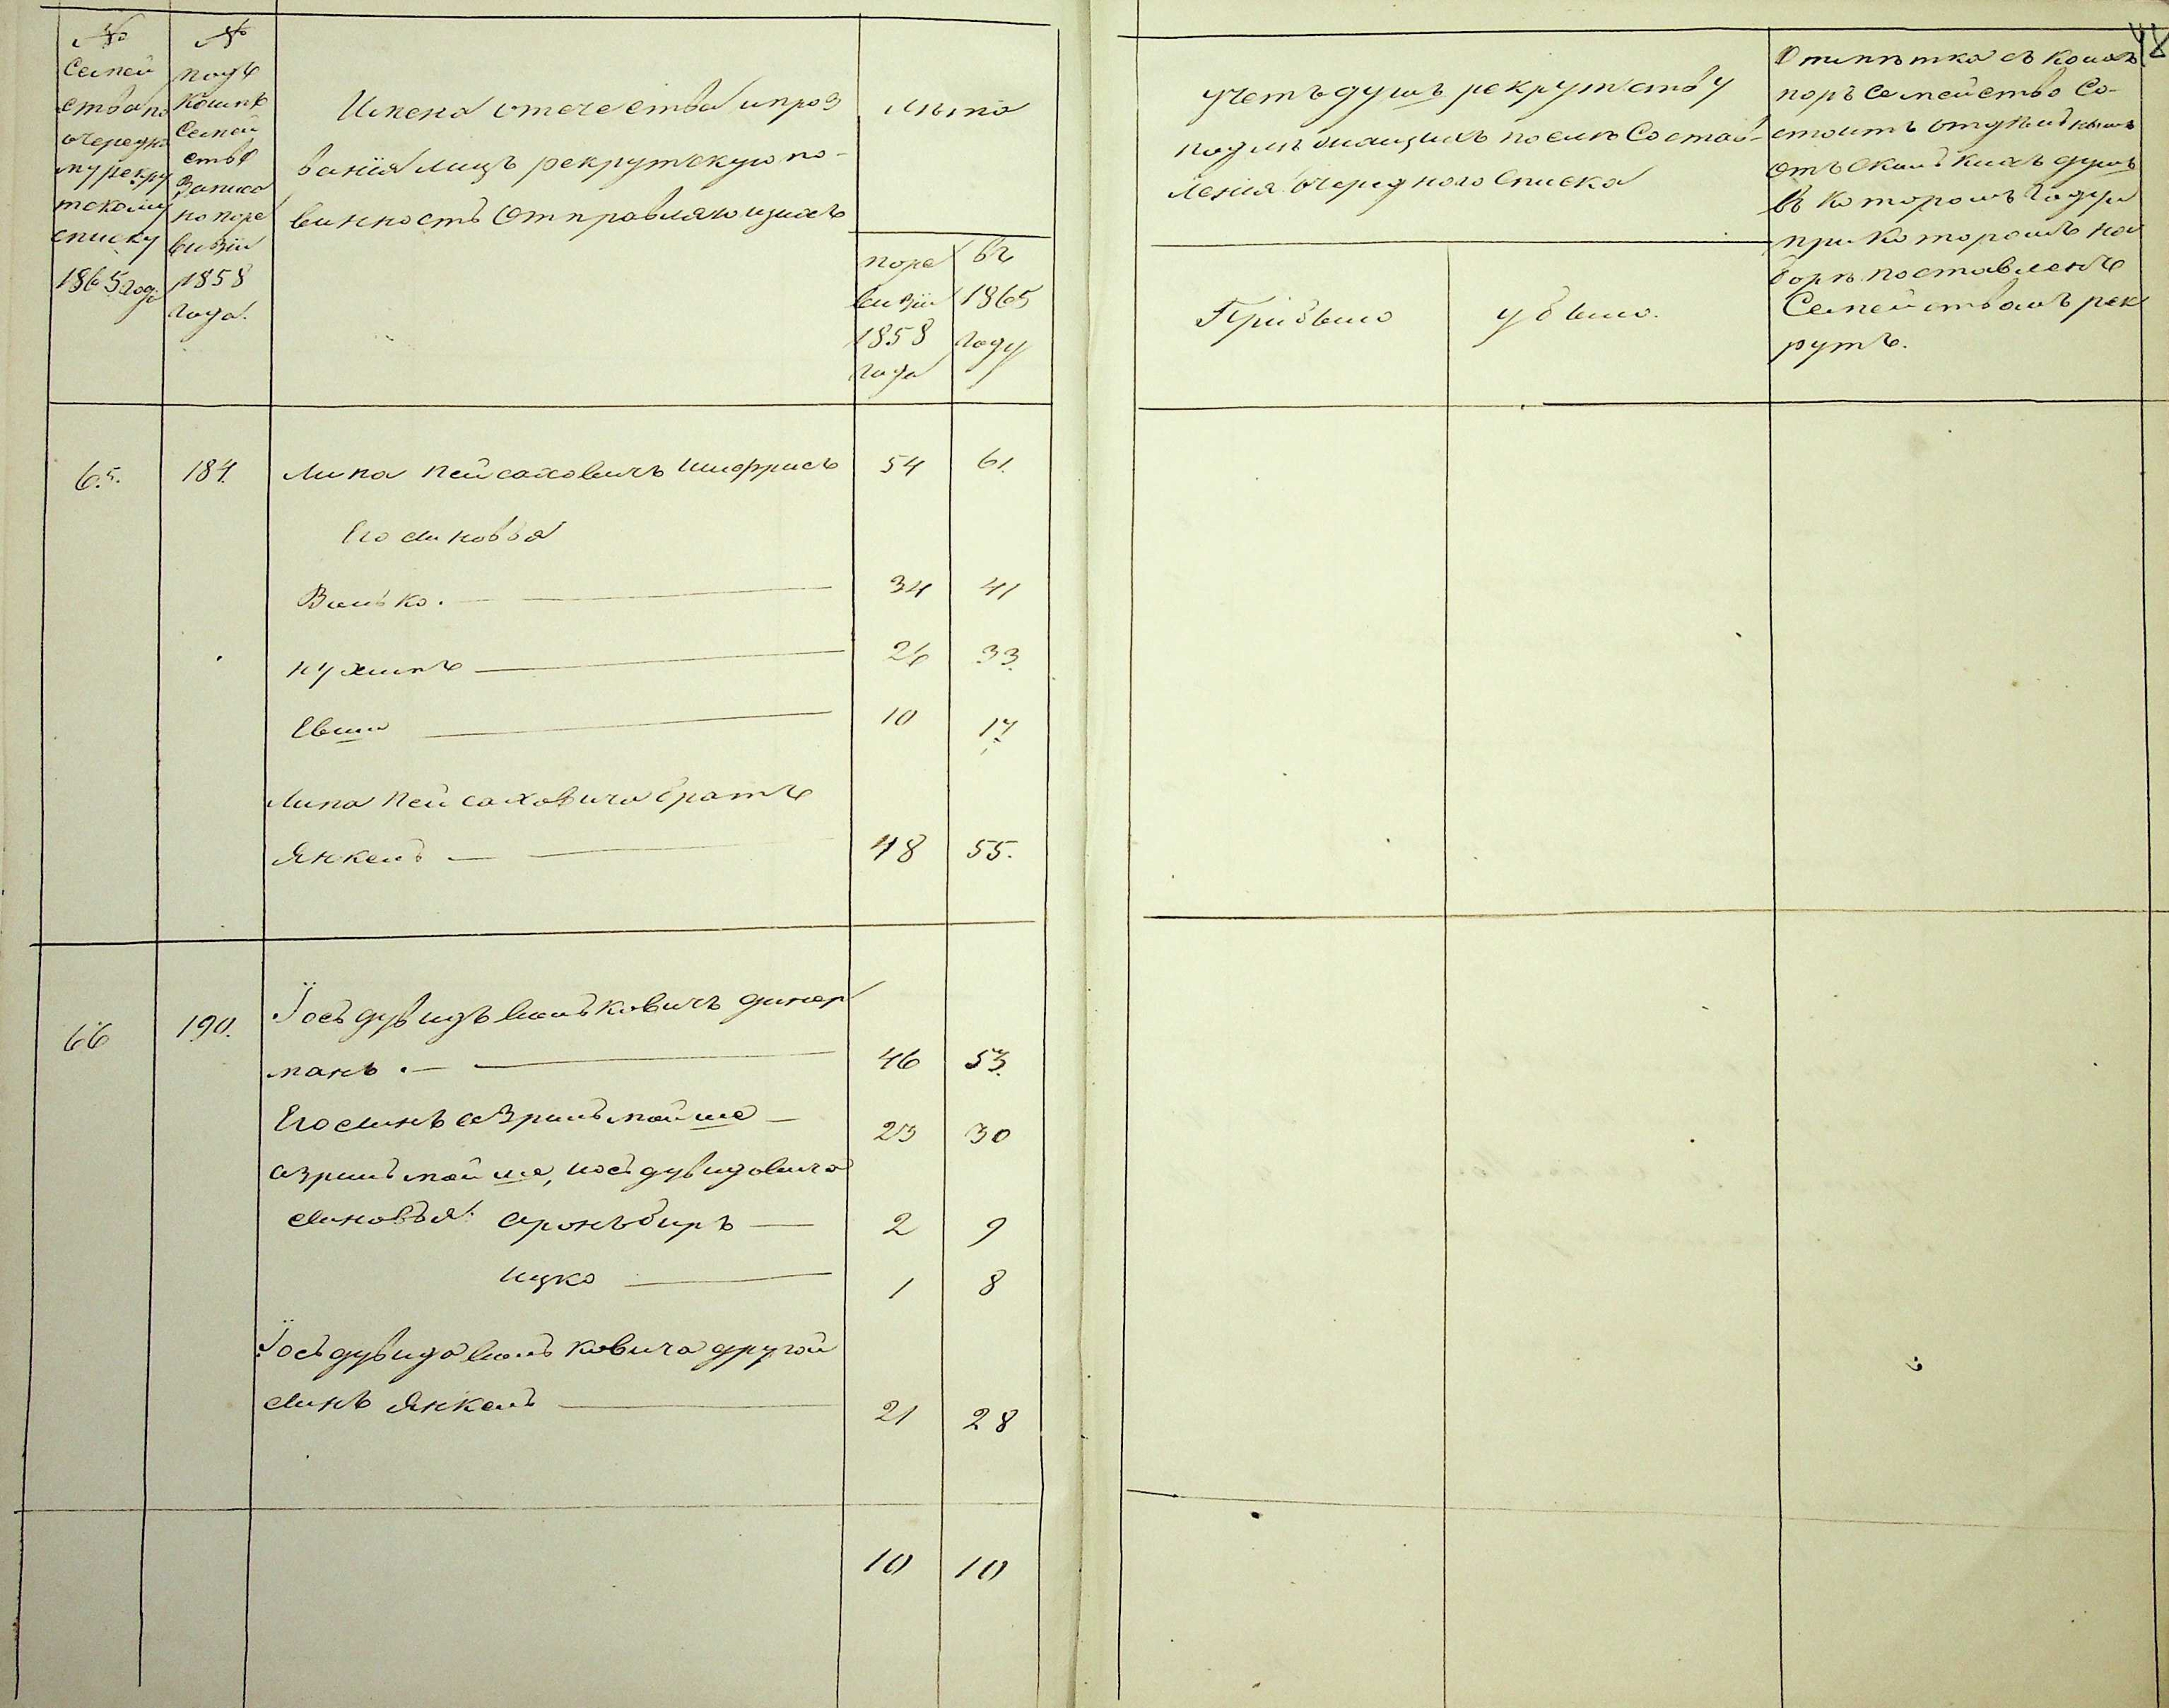 №
Семей
ства по
очередно
му рекру
тскому
списку
1865 года
№
подъ
коимъ
Семей
ство
записа
но по ре
визіи
1858
года.
Имена отечества и проз
ванія лицъ рекрутскую по-
винность отправляющихъ
Лѣта
по ре
визіи
1858
года
въ
1865
году
Учетъ душъ рекрутству
подлежащихъ после состав-
ленія очереднаго списка
Прибыло
убыло.
Отмѣтка съ коихъ
поръ семейство со-
стоитъ отдѣльнымъ
отъ сколькихъ душъ
въ которомъ году и
при которомъ на
борѣ поставленъ
Семействомъ рек
рутъ.
48
65. 184. Липа Пейсаховичъ Шифрисъ 54 61.
Его синовья
Волько. — 34 41
Нухимъ — 26 33.
Евши — 10 17
Липа Пейсаховича братъ
Янкель — 48 55.
66 190. Іось дувидъ Волковичъ динер
манъ. — 46 53.
Его синъ азриль мойше — 23 30
азриль мойше, иось дувидовича
синовья: аронъ биръ — 2 9
ицко — 1 8
Іось дувида Вольковича другой
синъ Янкель — 21 28
10 10